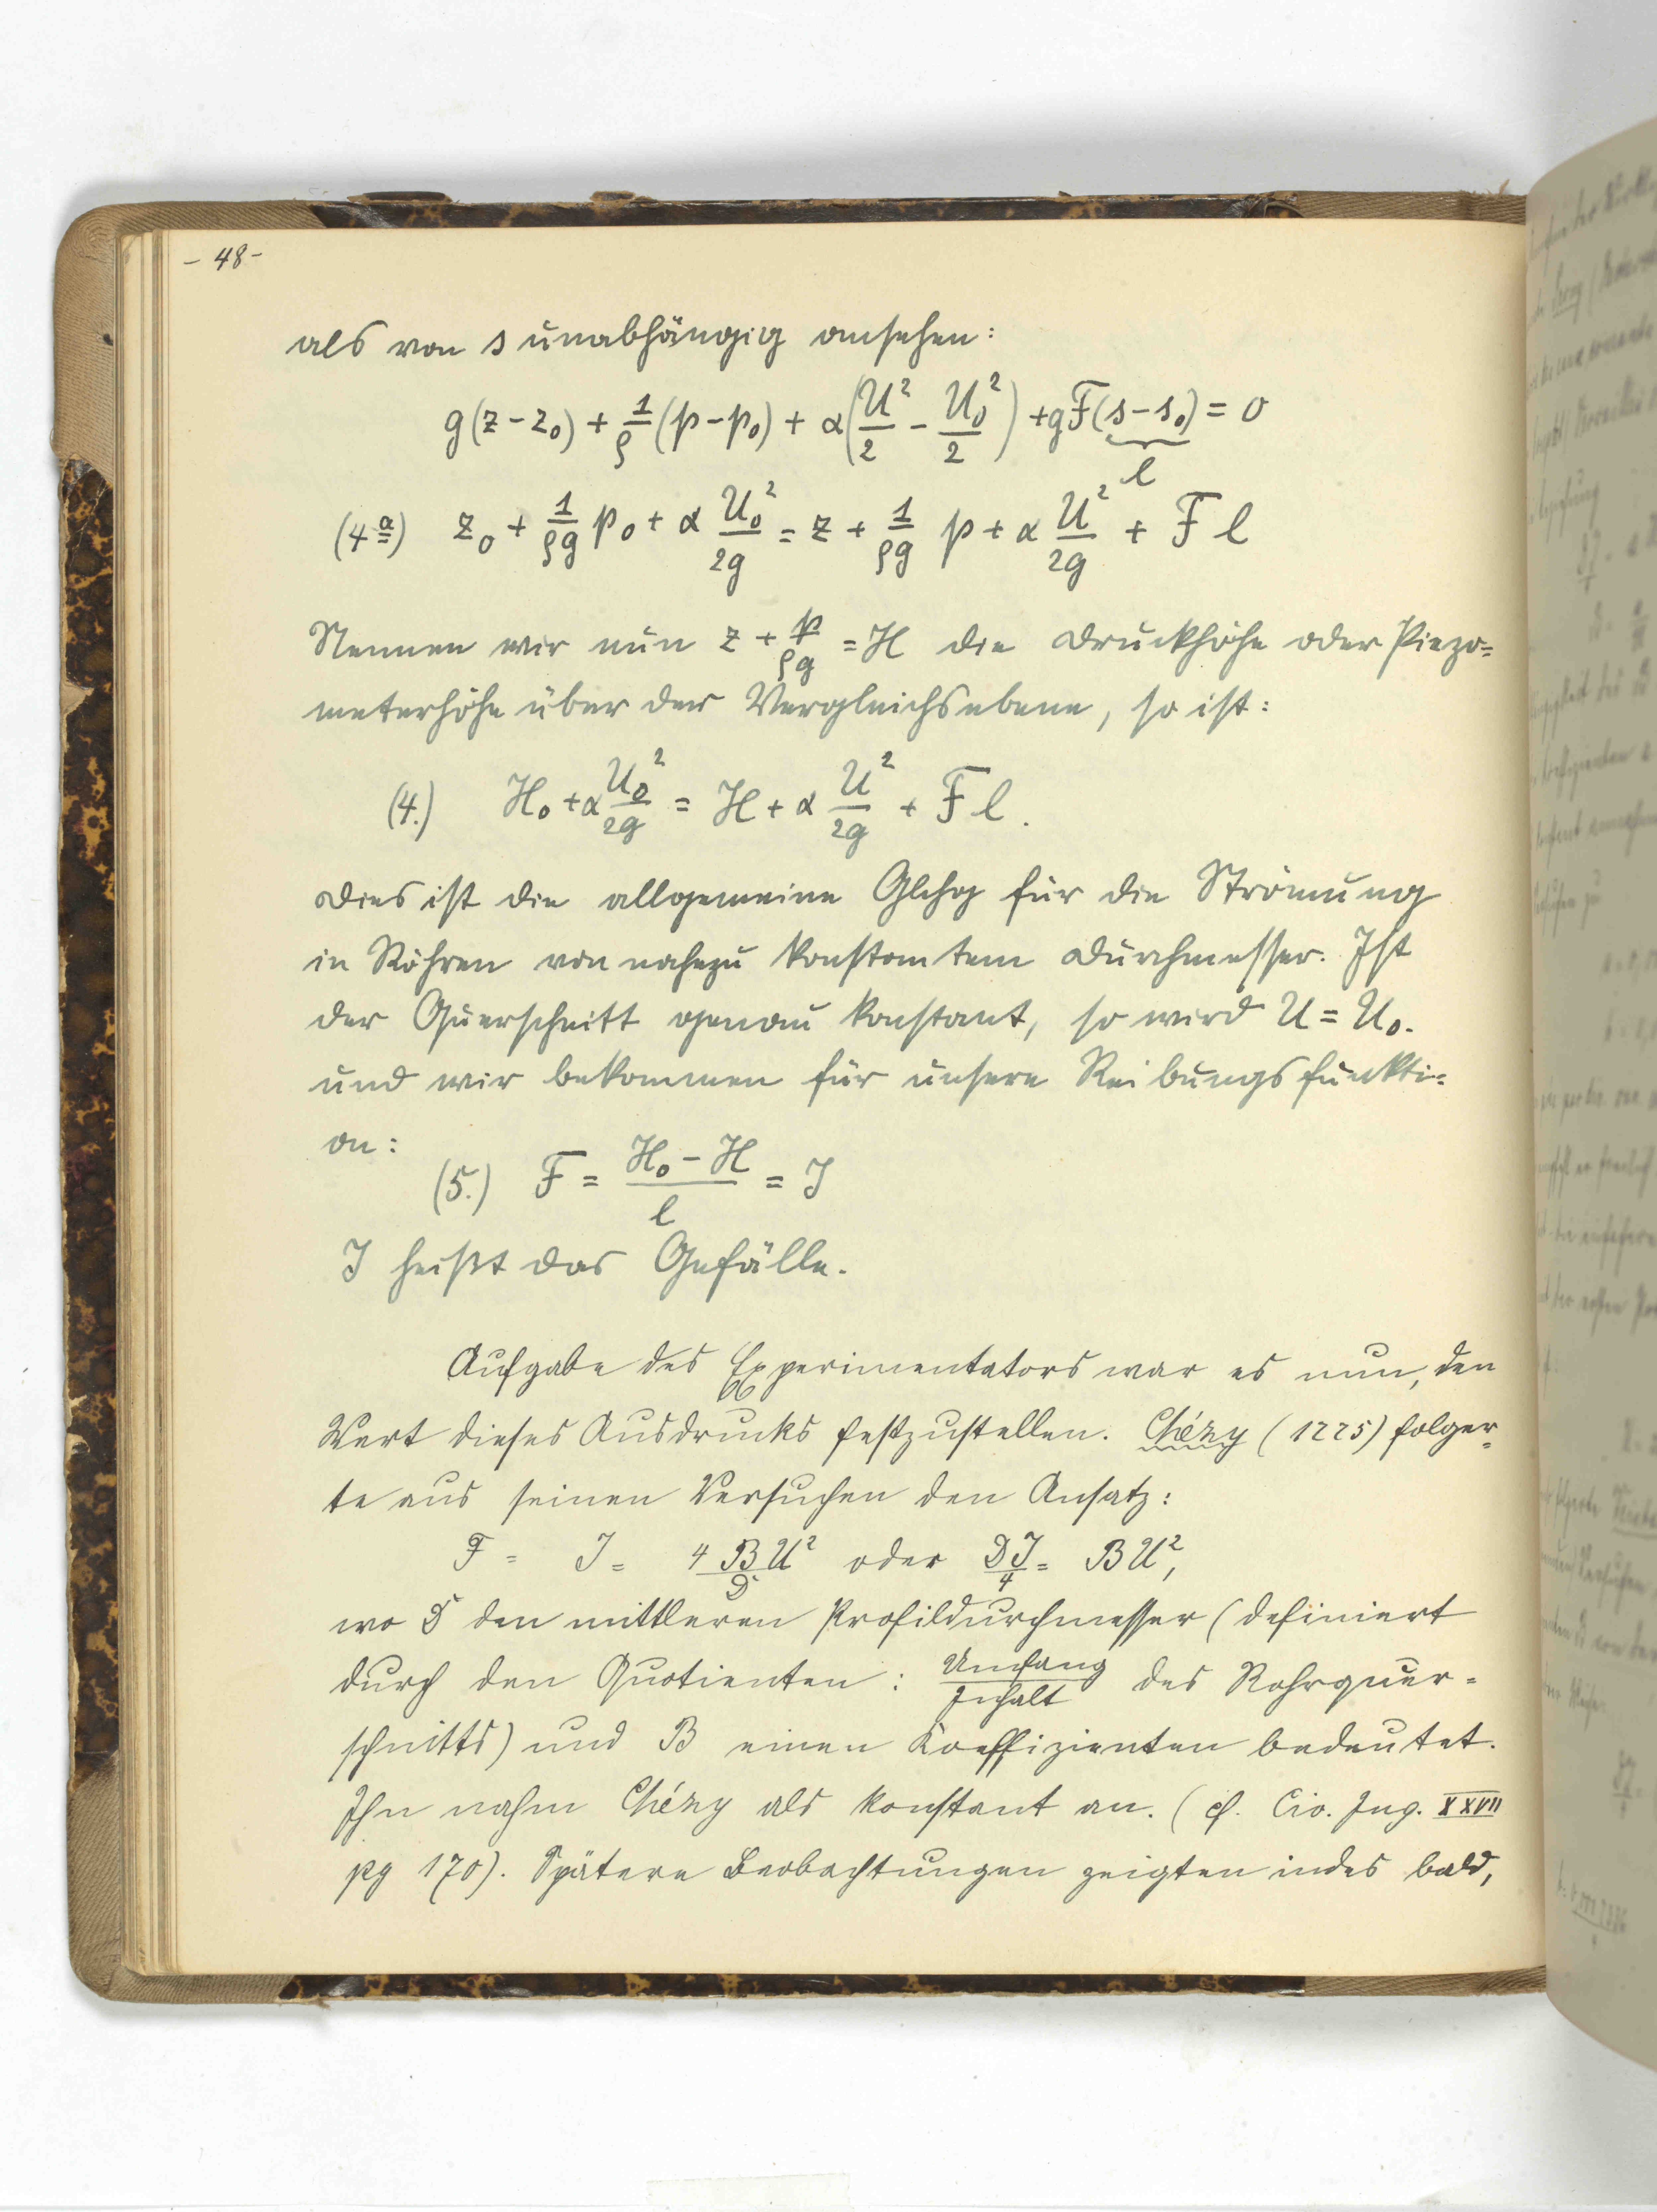 - 48 -
als von s unabhängig ansehen:
g(z - z₀) + 1/ρ (p - p₀) + α(U²/2 - U₀²/2) + gF(s - s₀) = 0
l
(4a) z₀ + 1/ρg p₀ + α U₀²/2g = z + 1/ρg p + α U²/2g + F l
Nennen wir nun z + p/ρg = H die Druckhöhe oder Piezo=
meterhöhe über der Vergleichsebene, so ist:
(4.) H₀ + α U₀²/2g = H + α U²/2g + F l.
Dies ist die allgemeine Glchg für die Strömung
in Röhren von nahezu konstantem Durchmesser. Ist
der Querschnitt genau konstant, so wird U = U₀.
und wir bekommen für unsere Reibungsfunkti=
on:
(5.) F = H₀ - H / l = J
J heißt das Gefälle.
Aufgabe des Experimentators war es nun, den
Wert dieses Ausdrucks festzustellen. Chézy (1775) folger=
te aus seinen Versuchen den Ansatz:
F = J = 4BU²/D oder DJ/4 = BU²,
wo D den mittleren Profildurchmesser (definiert
durch den Quotienten: Umfang/Inhalt des Rohrquer=
schnitts) und B einen Koeffizienten bedeutet.
Ihn nahm Chézy als konstant an. (cf. Civ. Ing. XXVII
pg 170). Spätere Beobachtungen zeigten indes bald,